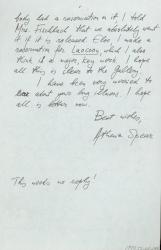 body had a reservation on it. I told
Mrs. Fischbach that we absolutely want
it if it is released. Else I made a
reservation for Laocoon, which I also
think is a major, key work. I hope
all this is clear to the Gallery.
I have been very worried to
hear about your long illness. I hope
all is better now.
Best wishes,
Athena Spear
This needs no reply!